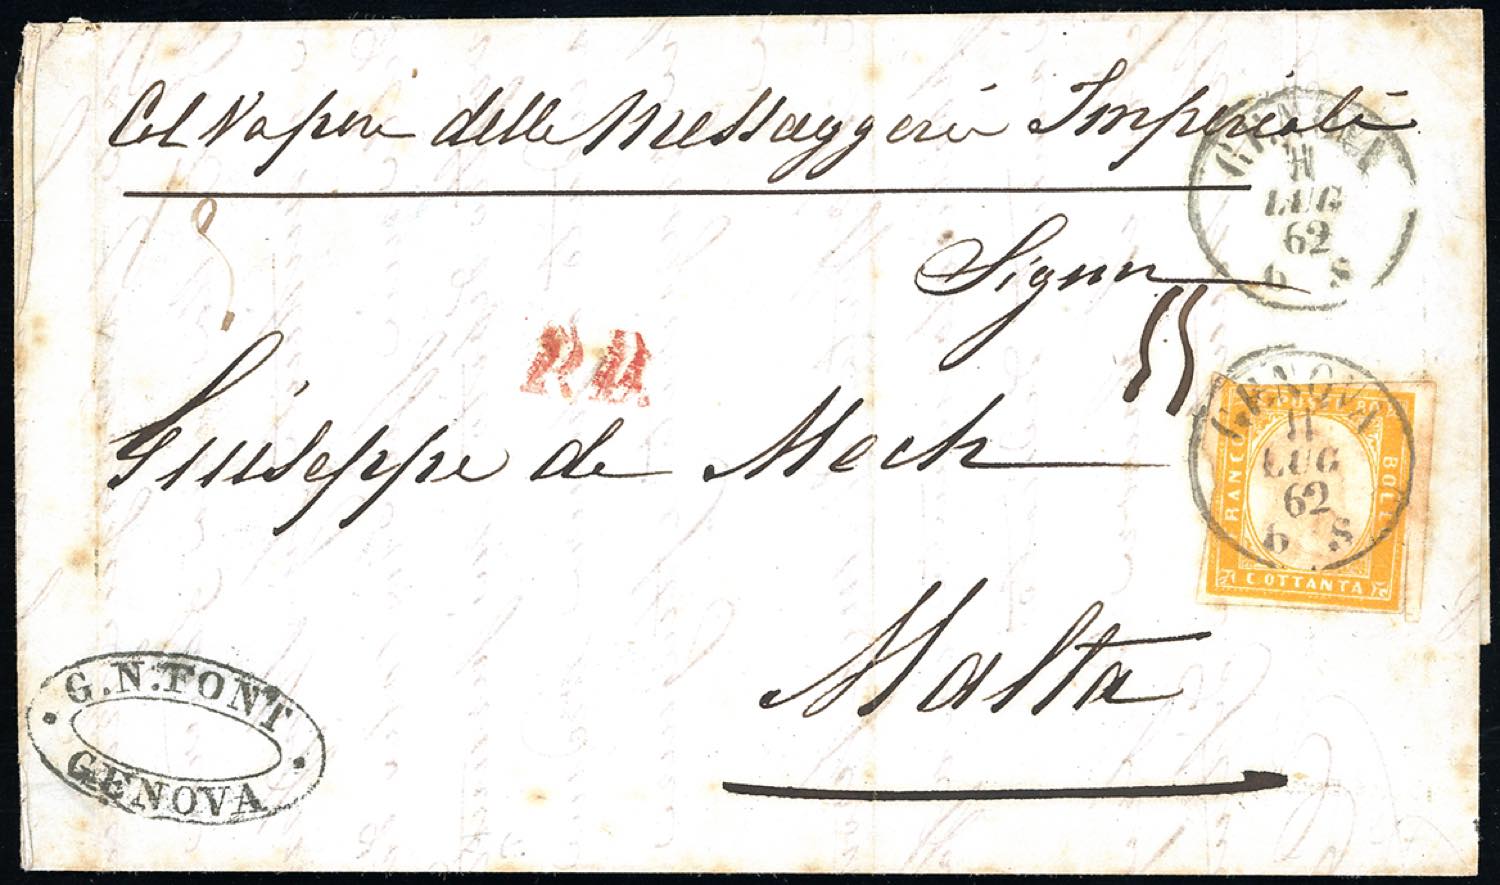 Col Vapore delle Messaggerie Imperiali
GENOVA
11
LUG
62
6 S
Signor
P.D.
Giuseppe de Mech
GENOVA
11
LUG
62
6 S
BOLL
C OTTANTA
Malta
G.N. FONT
GENOVA